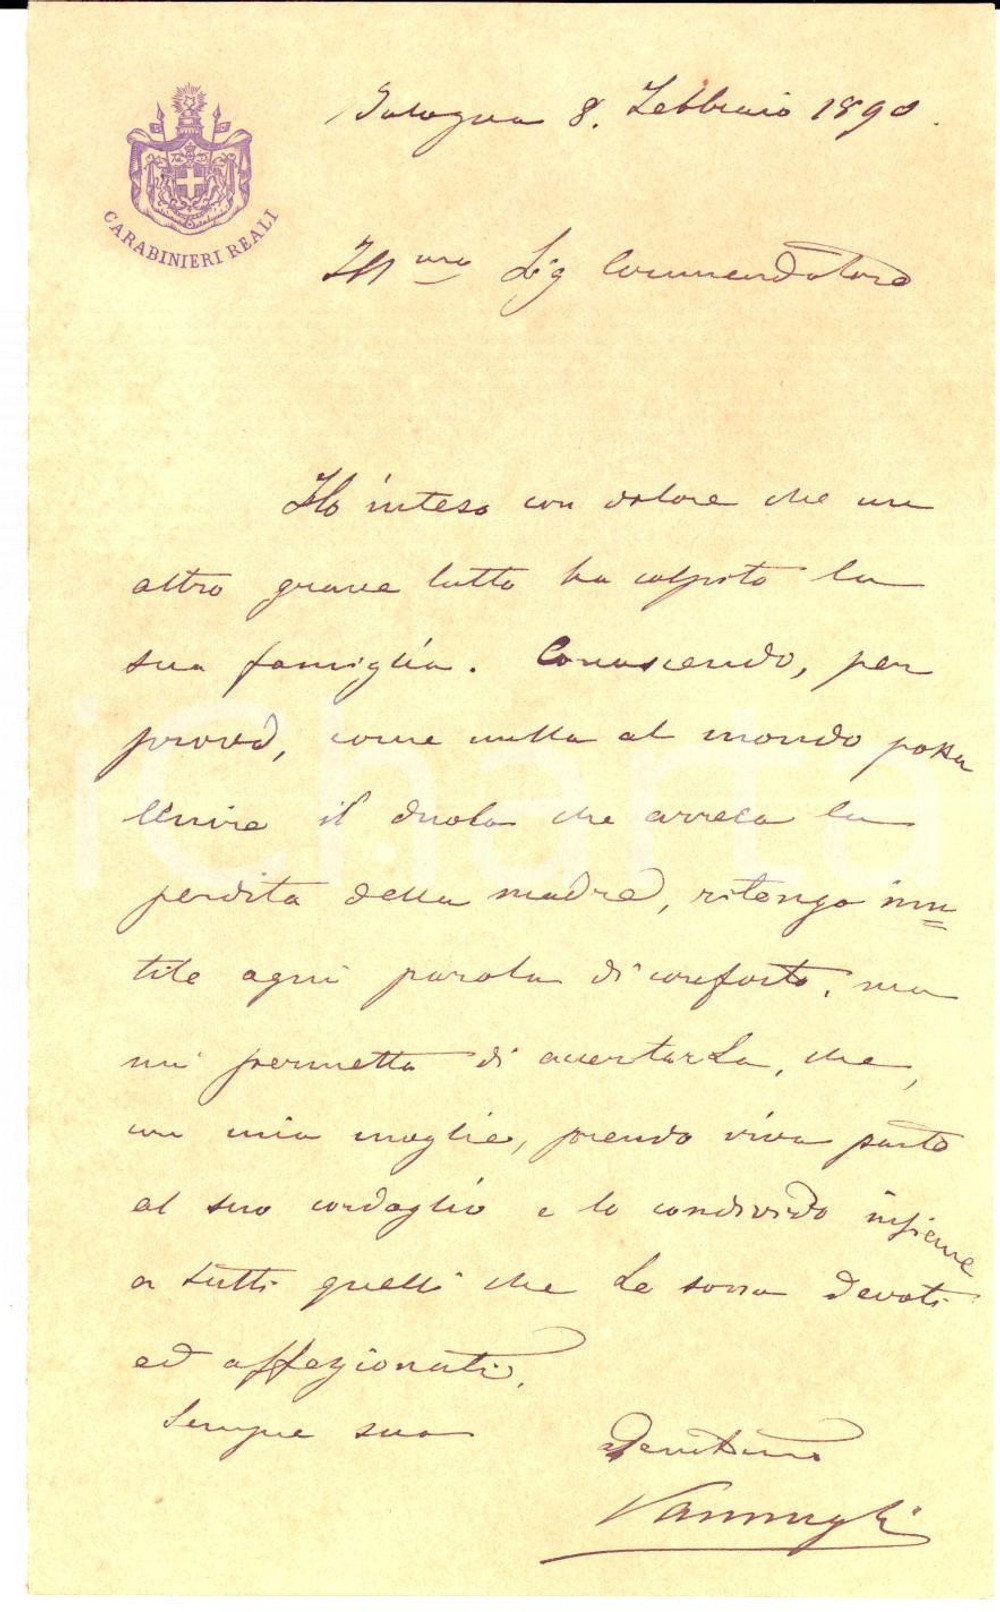 Bologna 8. Febbraio 1890.
CARABINIERI REALI
Ill.mo Sig Commendatore
Ho inteso con dolore che un
altro grave lutto ha colpito la
sua famiglia. Conoscendo, per
prova, come nulla al mondo possa
lenire il duolo che arreca la
perdita della madre, ritengo inu=
tile ogni parola di conforto, ma
mi permetta di accertarLa, che,
con mia moglie, prendo viva parte
al suo cordoglio e lo condivido insieme
a tutti quelli che Le sono devoti
ed affezionati.
Sempre suo
Vannugli